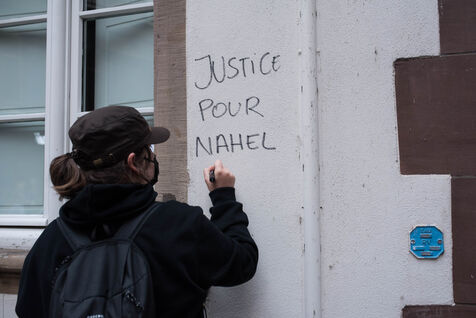 JUSTICE
POUR
NAHEL